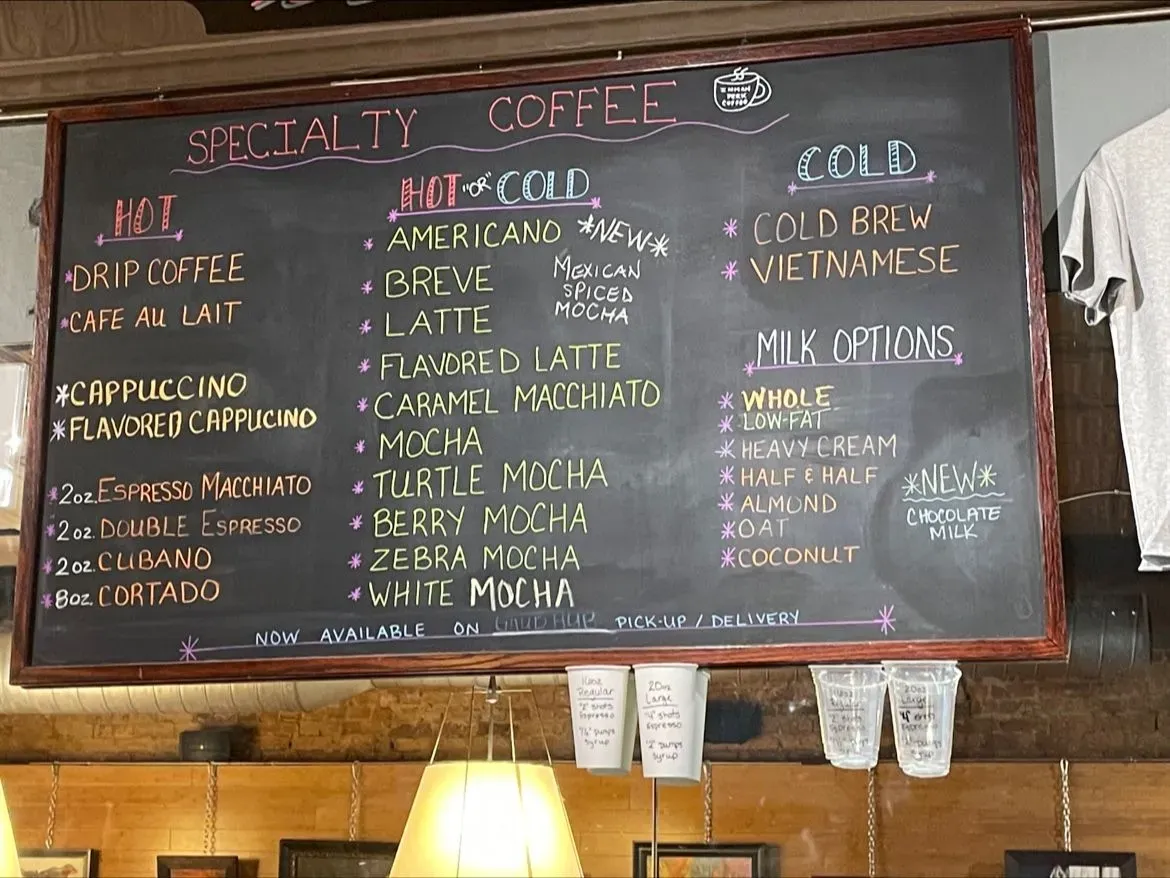 SPECIALTY COFFEE
INMAN
PERK
COFFEE
HOT
*DRIP COFFEE
*CAFE AU LAIT
*CAPPUCCINO
*FLAVORED CAPPUCINO
*2oz. ESPRESSO MACCHIATO
*2oz. DOUBLE ESPRESSO
*2oz. CUBANO
*8oz. CORTADO
HOT "OR" COLD
*AMERICANO
*BREVE
*LATTE
*FLAVORED LATTE
*CARAMEL MACCHIATO
*MOCHA
*TURTLE MOCHA
*BERRY MOCHA
*ZEBRA MOCHA
*WHITE MOCHA
*NEW*
MEXICAN
SPICED
MOCHA
COLD
*COLD BREW
*VIETNAMESE
MILK OPTIONS
*WHOLE
*LOW-FAT
*HEAVY CREAM
*HALF & HALF
*ALMOND
*OAT
*COCONUT
*NEW*
CHOCOLATE
MILK
NOW AVAILABLE ON PICK-UP / DELIVERY
16oz
Regular
"2" shots
Espresso
pumps
syrup
20oz
Large
"4" shots
Espresso
"2" pumps
syrup
16oz
Regular
"2" shots
Espresso
20oz
Large
"4" shots
Espresso